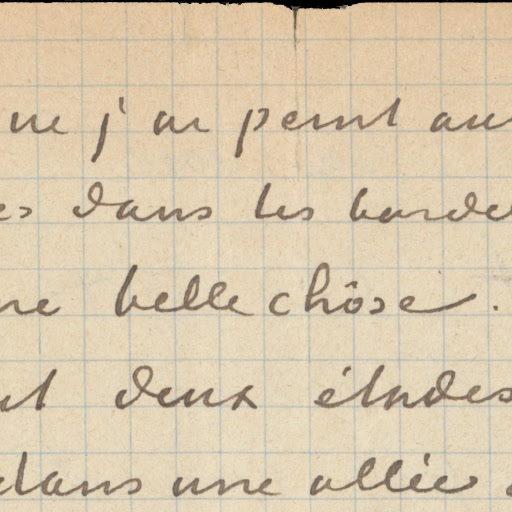 ue j'ai peint au
es dans les bordel
ne belle chôse.
nt deux études
dans une allée